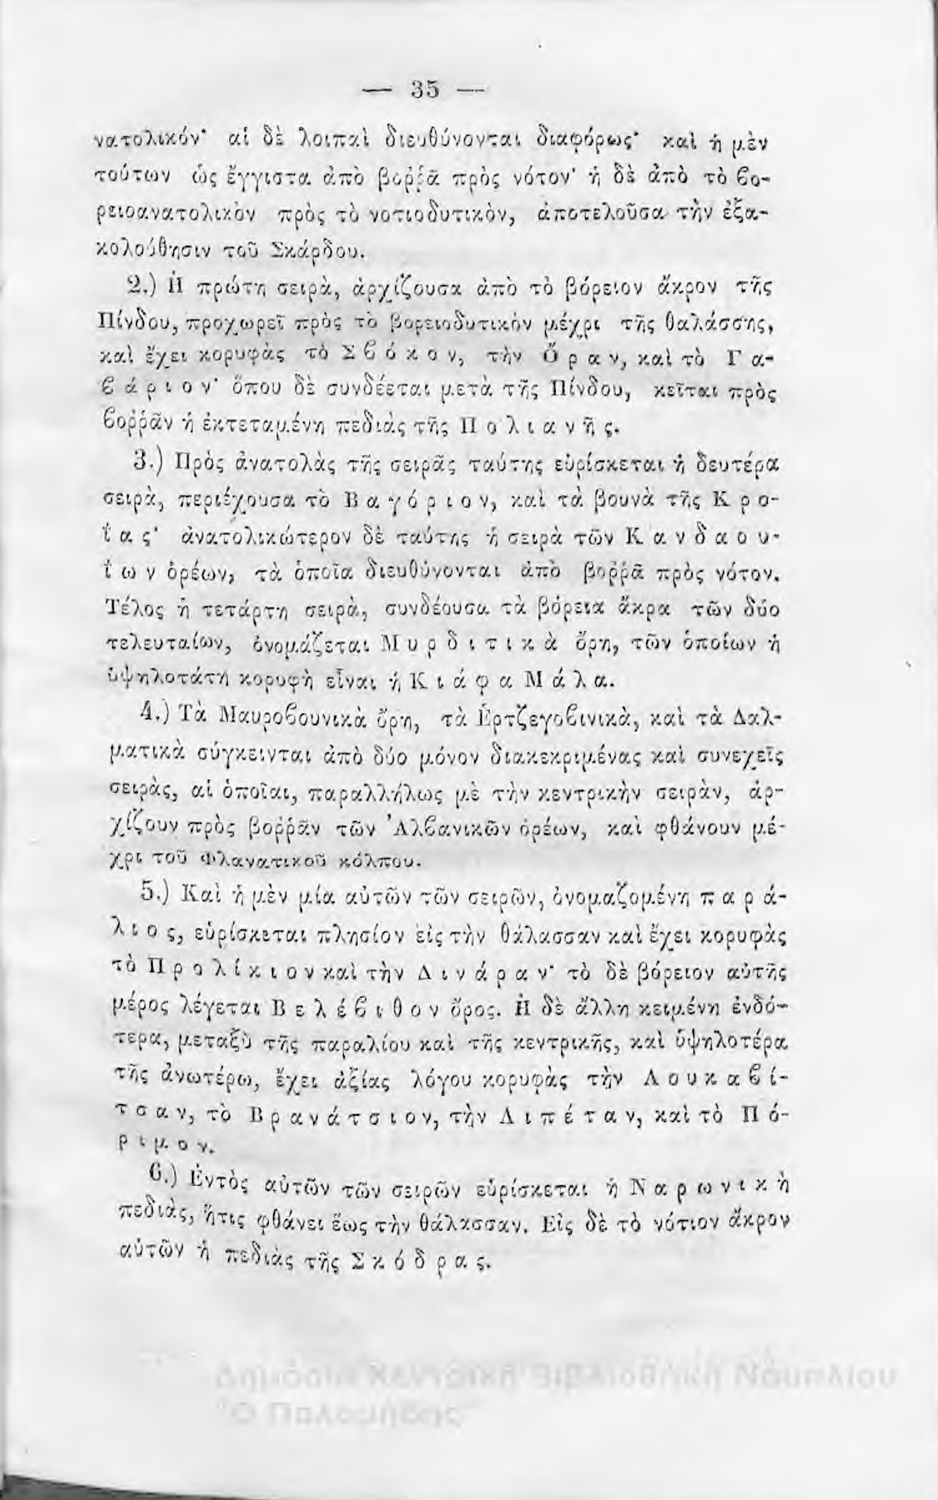 — 35 —
νατολικόν· αἱ δὲ λοιπαὶ διευθύνονται διαφόρως· καὶ ἡ μὲν
τούτων ὡς ἔγγιστα ἀπὸ βοῤῥᾶ πρὸς νότον· ἡ δὲ ἀπὸ τὸ ϐο-
ρειοανατολικὸν πρὸς τὸ νοτιοδυτικὸν, ἀποτελοῦσα τὴν ἐξα-
κολούθησιν τοῦ Σκάρδου.
2.) Ἡ πρώτη σειρὰ, ἀρχίζουσα ἀπὸ τὸ βόρειον ἄκρον τῆς
Πίνδου, προχωρεῖ πρὸς τὸ βορειοδυτικὸν μέχρι τῆς θαλάσσης,
καὶ ἔχει κορυφὰς τὸ Σϐόκον, τὴν Ὄραν, καὶ τὸ Γα-
ϐάριον· ὅπου δὲ συνδέεται μετὰ τῆς Πίνδου, κεῖται πρὸς
ϐοῤῥᾶν ἡ ἐκτεταμένη πεδιὰς τῆς Πολιανῆς.
3.) Πρὸς ἀνατολὰς τῆς σειρᾶς ταύτης εὑρίσκεται ἡ δευτέρα
σειρὰ, περιέχουσα τὸ Βαγόριον, καὶ τὰ βουνὰ τῆς Κρο-
ΐας· ἀνατολικώτερον δὲ ταύτης ἡ σειρὰ τῶν Κανδαου-
ΐων ὀρέων, τὰ ὁποῖα διευθύνονται ἀπὸ βοῤῥᾶ πρὸς νότον.
Τέλος ἡ τετάρτη σειρὰ, συνδέουσα τὰ βόρεια ἄκρα τῶν δύο
τελευταίων, ὀνομάζεται Μυρδιτικὰ ὄρη, τῶν ὁποίων ἡ
ὑψηλοτάτη κορυφὴ εἶναι ἡ Κιάφα Μάλα.
4.) Τὰ Μαυροϐουνικὰ ὄρη, τὰ Ἐρτζεγοϐινικὰ, καὶ τὰ Δαλ-
ματικὰ σύγκεινται ἀπὸ δύο μόνον διακεκριμένας καὶ συνεχεῖς
σειρὰς, αἱ ὁποῖαι, παραλλήλως μὲ τὴν κεντρικὴν σειρὰν, ἀρ-
χίζουν πρὸς βοῤῥᾶν τῶν Ἀλϐανικῶν ὀρέων, καὶ φθάνουν μέ-
χρι τοῦ Φλανατικοῦ κόλπου.
5.) Καὶ ἡ μὲν μία αὐτῶν τῶν σειρῶν, ὀνομαζομένη παρά-
λιος, εὑρίσκεται πλησίον εἰς τὴν θάλασσαν καὶ ἔχει κορυφὰς
τὸ Προλίκιον καὶ τὴν Δινάραν· τὸ δὲ βόρειον αὐτῆς
μέρος λέγεται Βελέϐιθον ὄρος. Ἡ δὲ ἄλλη κειμένη ἐνδό-
τερα, μεταξὺ τῆς παραλίου καὶ τῆς κεντρικῆς, καὶ ὑψηλοτέρα
τῆς ἀνωτέρω, ἔχει ἀξίας λόγου κορυφὰς τὴν Λουκαϐί-
τσαν, τὸ Βρανάτσιον, τὴν Λιπέταν, καὶ τὸ Πό-
ριμον.
6.) Ἐντὸς αὐτῶν τῶν σειρῶν εὑρίσκεται ἡ Ναρωνικὴ
πεδιὰς, ἥτις φθάνει ἕως τὴν θάλασσαν. Εἰς δὲ τὸ νότιον ἄκρον
αὐτῶν ἡ πεδιὰς τῆς Σκόδρας.
Δημόσια Κεντρική Βιβλιοθήκη Ναυπλίου
"Ο Παλαμήδης"